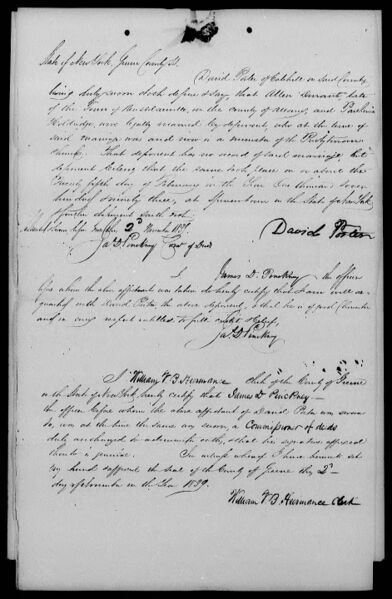 State of New York, Greene County Ss.
David Porter of Catskill in said County
being duly sworn doth depose & say, that Allen Durant, late
of the Town of in the county of and
were legally married by deponent, who at the time of
said marriage was and now is a member of the Presbyterian
That deponent has no record of said marriage, but
deponent believes that the same took place on or about the
Twenty fifth day of February in the Year One thousand seven
hundred ninety three, at Spencertown in the State of New York
further deponent saith not
this 2d November 1839
Jas D Pinckney Comr of Deeds
David Porter
I James D. Pinckney the officer
before whom the above affidavit was taken do hereby certify that I am well ac-
quainted with David Porter the above deponent, & that he is of good character
and in every respect entitled to full credit & belief,
Jas D Pinckney
I William V B Heermance Clerk of the County of Greene
in the State of New York, hereby certify that James D Pinckney
the officer before whom the above affidavit of David Porter was sworn
to, was at the time the same was sworn, a Commissioner of deeds
duly authorized to administer oaths, that his signature affixed
thereto is genuine. In witness whereof I have hereunto set
my hand & affixed the seal of the County of Greene this 2d
day of November in the Year 1839.
William V B Heermance Clerk